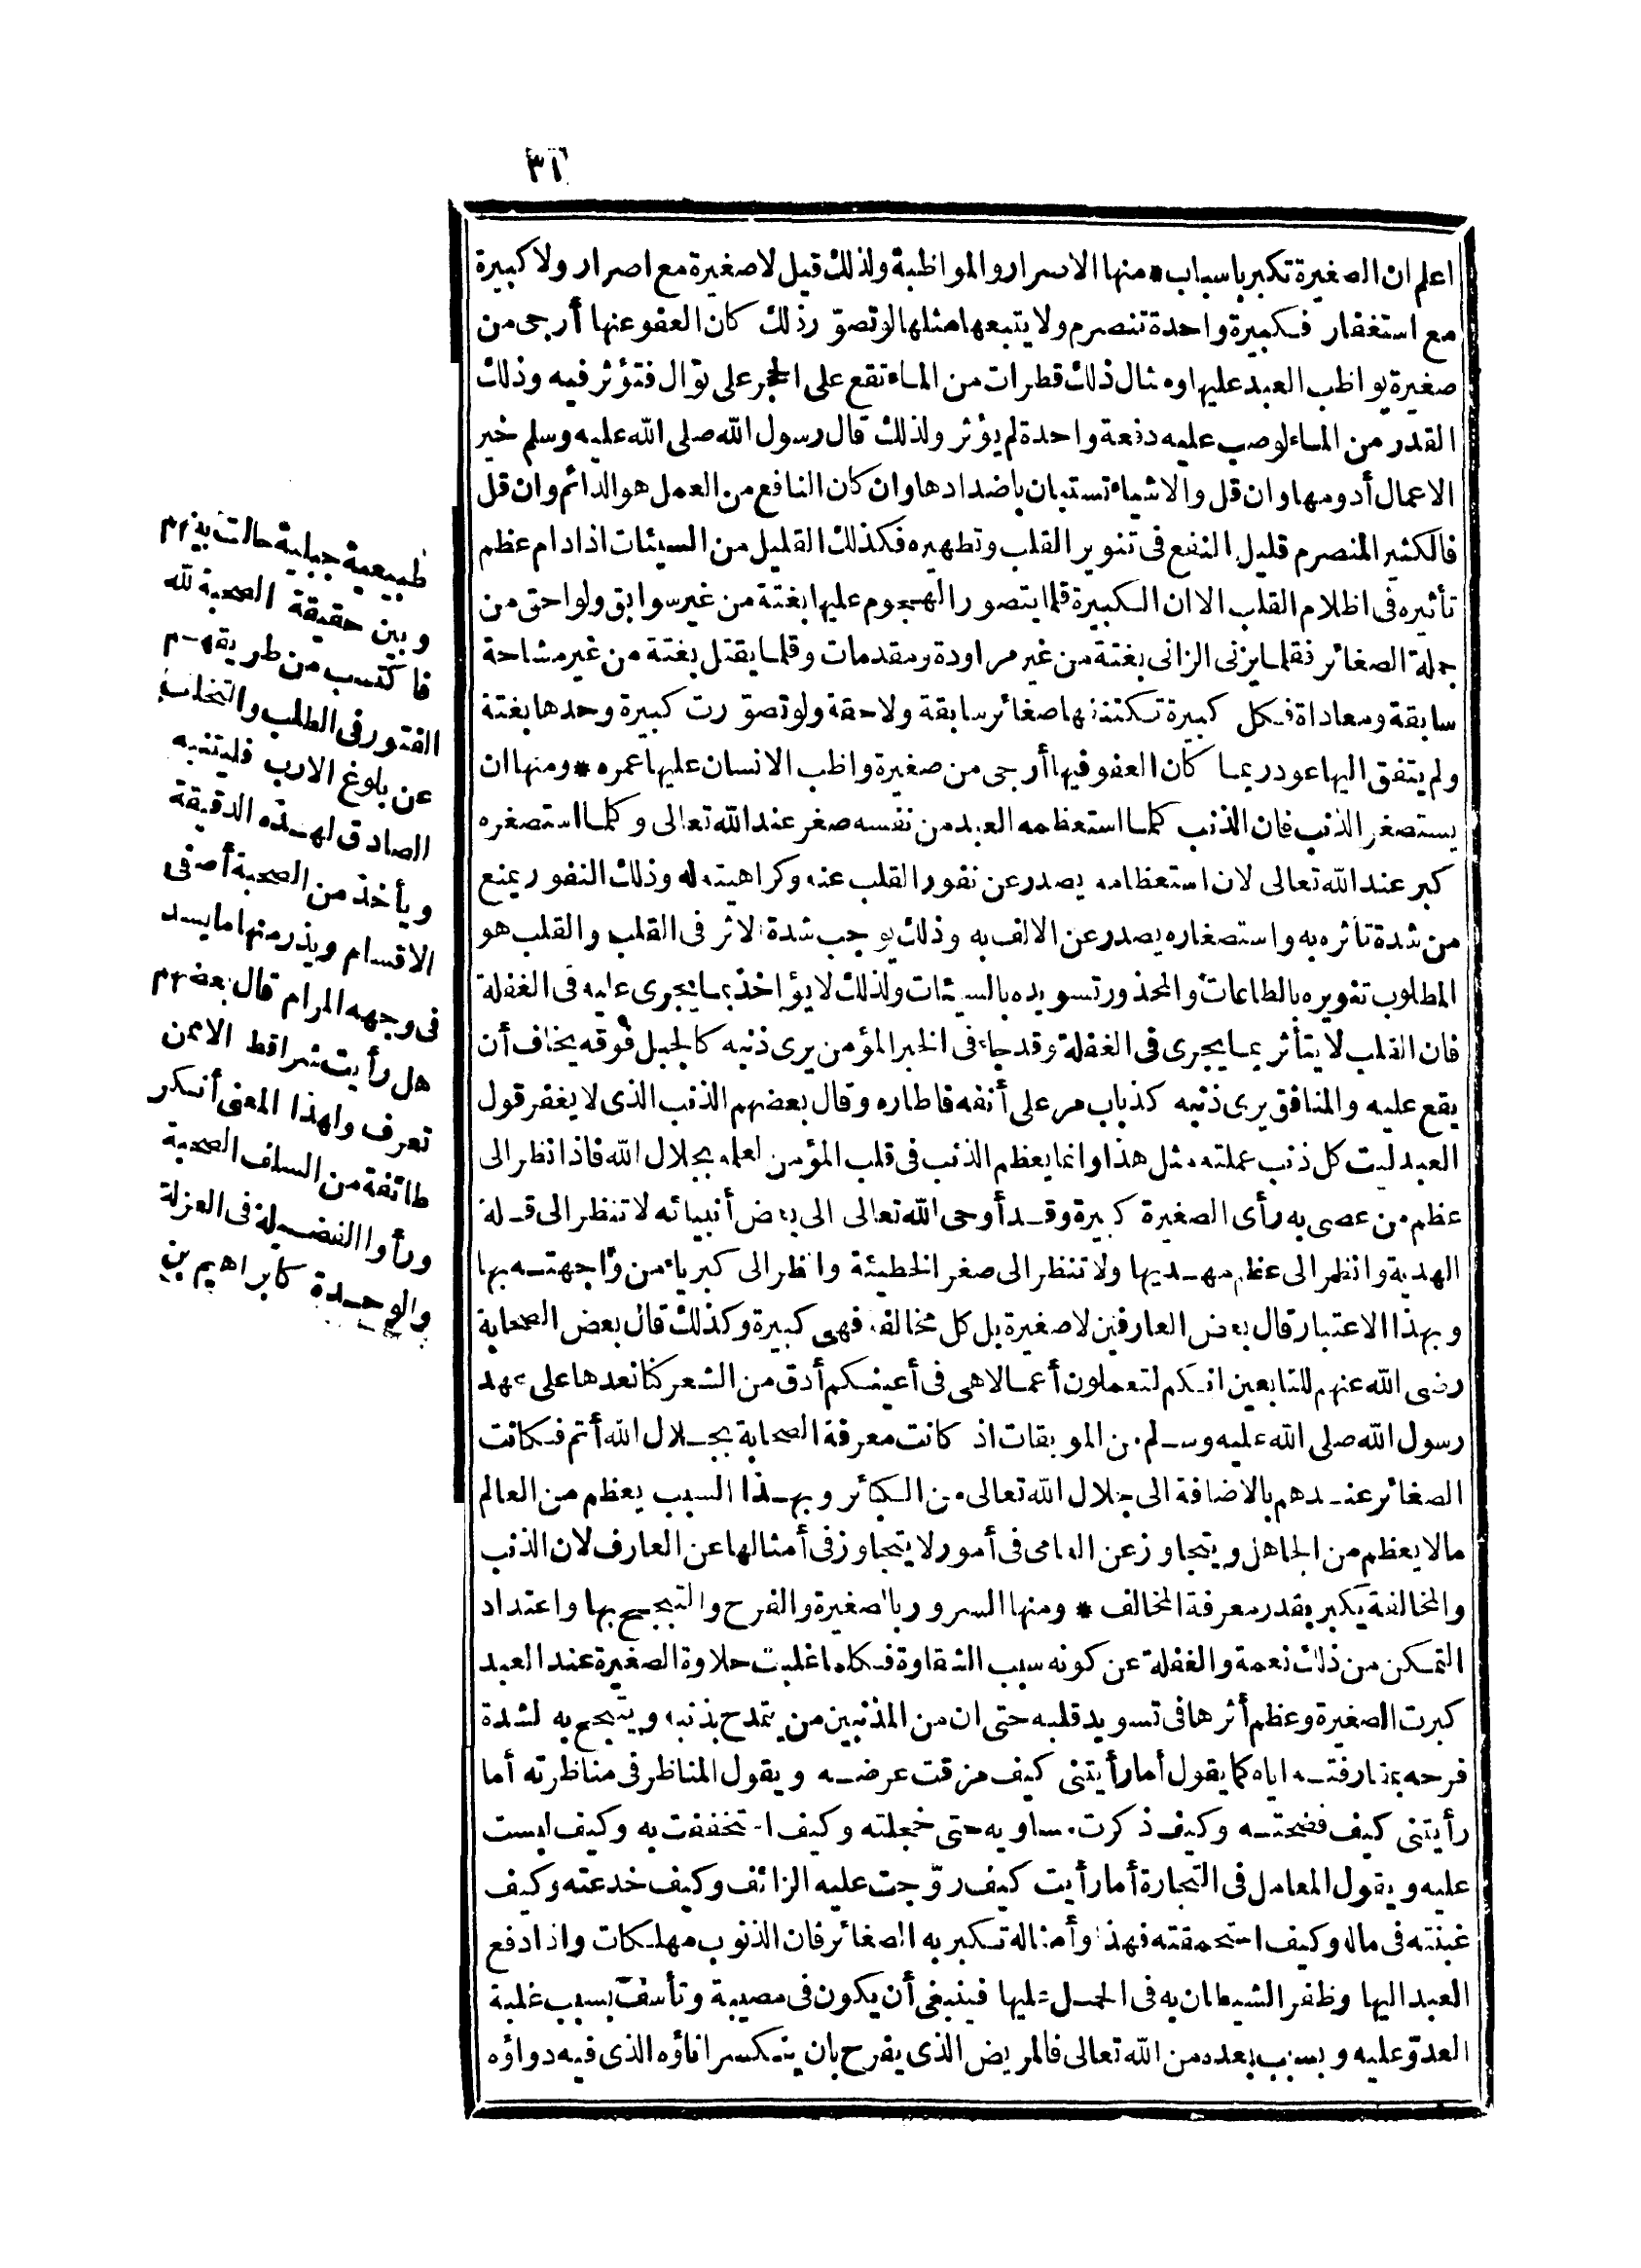 ٣١
اعلم ان الصغيرة تكبر باسباب * منها الاصرار والمواظبة ولذلك قيل لا صغيرة مع اصرار ولا كبيرة
مع استغفار فكبيرة واحدة تنصرم ولا يتبعها مثلها لو تصوّر ذلك كان العفو عنها أرجى من
صغيرة يواظب العبد عليها ومثال ذلك قطرات من الماء تقع على الحجر على توال فتؤثر فيه وذلك
القدر من الماء لو صب عليه دفعة واحدة لم يؤثر ولذلك قال رسول الله صلى الله عليه وسلم خير
الاعمال أدومها وان قل والاشياء تستبان باضدادها وان كان النافع من العمل هو الدائم وان قل
فالكثير المنصرم قليل النفع فى تنوير القلب وتطهيره فكذلك القليل من السيئات اذا دام عظم
تأثيره فى اظلام القلب الا ان الكبيرة قلما يتصور الهجوم عليها بغتة من غير سوابق ولواحق من
جملة الصغائر فقلما يزنى الزانى بغتة من غير مراودة ومقدمات وقلما يقتل بغتة من غير مشاحة
سابقة ومعاداة فكل كبيرة تكتنفها صغائر سابقة ولاحقة ولو تصوّرت كبيرة وحدها بغتة
ولم يتفق اليها عود ربما كان العفو فيها أرجى من صغيرة واظب الانسان عليها عمره * ومنها ان
يستصغر الذنب فان الذنب كلما استعظمه العبد من نفسه صغر عند الله تعالى وكلما استصغره
كبر عند الله تعالى لان استعظامه يصدر عن نفور القلب عنه وكراهيته له وذلك النفور يمنع
من شدة تأثره به واستصغاره يصدر عن الالف به وذلك يوجب شدة الاثر فى القلب والقلب هو
المطلوب تنويره بالطاعات والمحذور تسويده بالسيئات ولذلك لا يؤاخذ بما يجرى عليه فى الغفلة
فان القلب لا يتأثر بما يجرى فى الغفلة وقد جاء فى الخبر المؤمن يرى ذنبه كالجبل فوقه يخاف أن
يقع عليه والمنافق يرى ذنبه كذباب مر على أنفه فاطاره وقال بعضهم الذنب الذى لا يغفر قول
العبد ليت كل ذنب عملته مثل هذا وانما يعظم الذنب فى قلب المؤمن لعلمه بجلال الله فاذا نظر الى
عظم من عصى به رأى الصغيرة كبيرة وقد أوحى الله تعالى الى بعض أنبيائه لا تنظر الى قلة
الهدية وانظر الى عظم مهديها ولا تنظر الى صغر الخطيئة وانظر الى كبرياء من واجهته بها
وبهذا الاعتبار قال بعض العارفين لا صغيرة بل كل مخالفة فهى كبيرة وكذلك قال بعض الصحابة
رضى الله عنهم للتابعين انكم لتعملون أعمالا هى فى أعينكم أدق من الشعر كنا نعدها على عهد
رسول الله صلى الله عليه وسلم من الموبقات اذ كانت معرفة الصحابة بجلال الله أتم فكانت
الصغائر عندهم بالاضافة الى جلال الله تعالى من الكبائر وبهذا السبب يعظم من العالم
مالا يعظم من الجاهل ويتجاوز عن العامى فى أمور لا يتجاوز فى أمثالها عن العارف لان الذنب
والمخالفة يكبر بقدر معرفة المخالف * ومنها السرور بالصغيرة والفرح والتبجح بها واعتداد
التمكن من ذلك نعمة والغفلة عن كونه سبب الشقاوة فكلما غلبت حلاوة الصغيرة عند العبد
كبرت الصغيرة وعظم أثرها فى تسويد قلبه حتى ان من المذنبين من يتمدح بذنبه ويتبجح به لشدة
فرحه بمقارفته اياه كما يقول أما رأيتنى كيف مزقت عرضه ويقول المناظر فى مناظرته أما
رأيتنى كيف فضحته وكيف ذكرت مساويه حتى خجلته وكيف استخففت به وكيف لبست
عليه ويقول المعامل فى التجارة أما رأيت كيف روّجت عليه الزائف وكيف خدعته وكيف
غبنته فى ماله وكيف استحمقته فهذا وأمثاله تكبر به الصغائر فان الذنوب مهلكات واذا دفع
العبد اليها وظفر الشيطان به فى الحمل عليها فينبغى أن يكون فى مصيبة وتأسف بسبب غلبة
العدوّ عليه وبسبب بعده من الله تعالى فالمريض الذى يفرح بان ينكسر اناؤه الذى فيه دواؤه
طبيعية جبلية حالت بينهم
وبين حقيقة الصحبة لله
فاكتسب من طريقهم
الفتور فى الطلب والتخلف
عن بلوغ الارب فليتنبه
الصادق لهذه الدقيقة
ويأخذ من الصحبة أصفى
الاقسام ويذر منها ما يسد
فى وجهه المرام قال بعضهم
هل رأيت شرا قط الا ممن
تعرف ولهذا المعنى أنكر
طائفة من السلف الصحبة
ورأوا الفضيلة فى العزلة
والوحدة كابراهيم بن